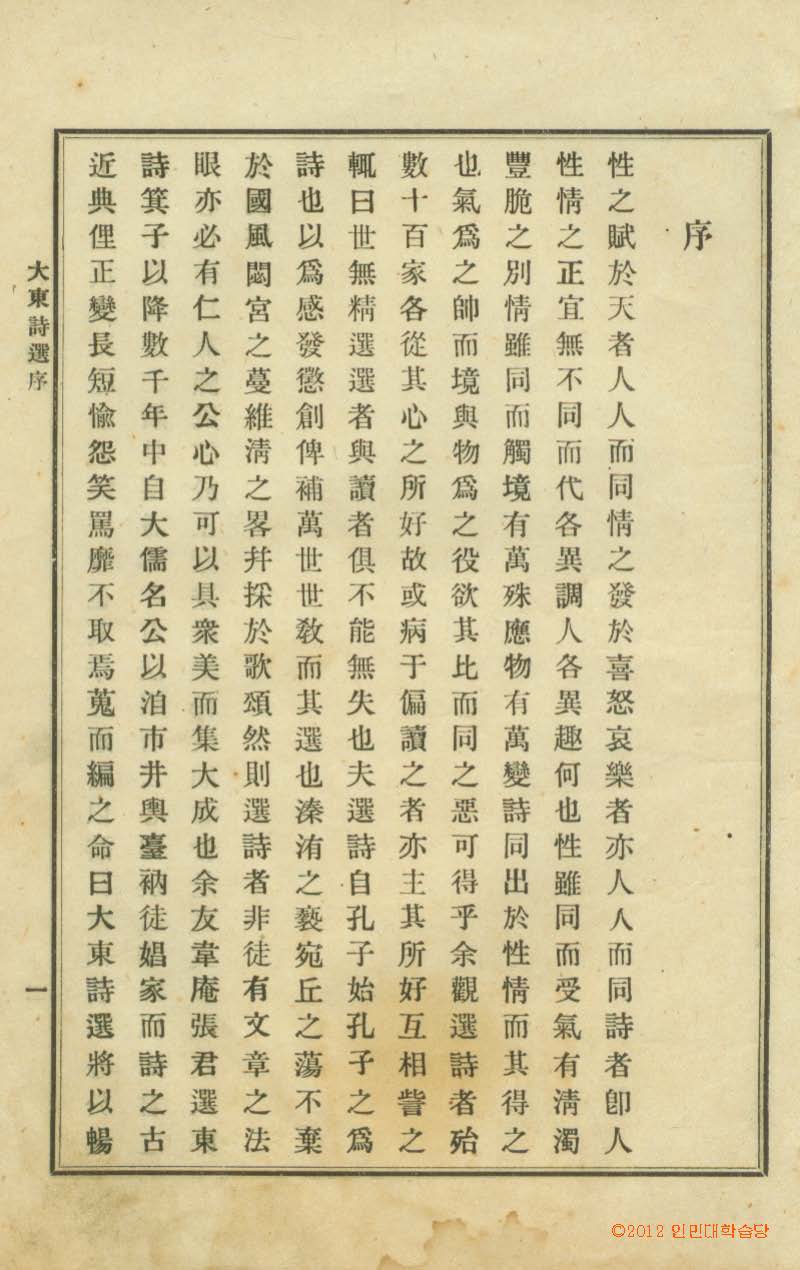 序
性之賦於天者人人而同情之發於喜怒哀樂者亦人人而同詩者卽人
性情之正宜無不同而代各異調人各異趣何也性雖同而受氣有淸濁
豐脆之別情雖同而觸境有萬殊應物有萬變詩同出於性情而其得之
也氣爲之帥而境與物爲之役欲其比而同之惡可得乎余觀選詩者殆
數十百家各從其心之所好故或病于偏讀之者亦主其所好互相訾之
輒曰世無精選選者與讀者俱不能無失也夫選詩自孔子始孔子之爲
詩也以爲感發懲創俾補萬世世敎而其選也溱洧之褻宛丘之蕩不棄
於國風閟宮之蔓維淸之畧幷採於歌頌然則選詩者非徒有文章之法
眼亦必有仁人之公心乃可以具衆美而集大成也余友韋庵張君選東
詩箕子以降數千年中自大儒名公以洎市井輿臺衲徒娼家而詩之古
近典俚正變長短愉怨笑罵靡不取焉蒐而編之命曰大東詩選將以暢
大東詩選序
一
©2012 인민대학습당